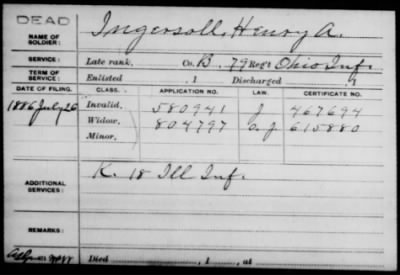 DEAD
NAME OF SOLDIER: Ingersoll, Henry A.
SERVICE: Late rank, Co. B, 79 Reg't Ohio Inf.
TERM OF SERVICE: Enlisted , 1 Discharged , 1
DATE OF FILING. CLASS. APPLICATION NO. LAW. CERTIFICATE NO.
1886 July 26 Invalid, 580941 J 467694
Widow, 804797 O. J. 615880
Minor,
ADDITIONAL SERVICES: K. 18 Ill Inf.
REMARKS:
Died , 1 , at